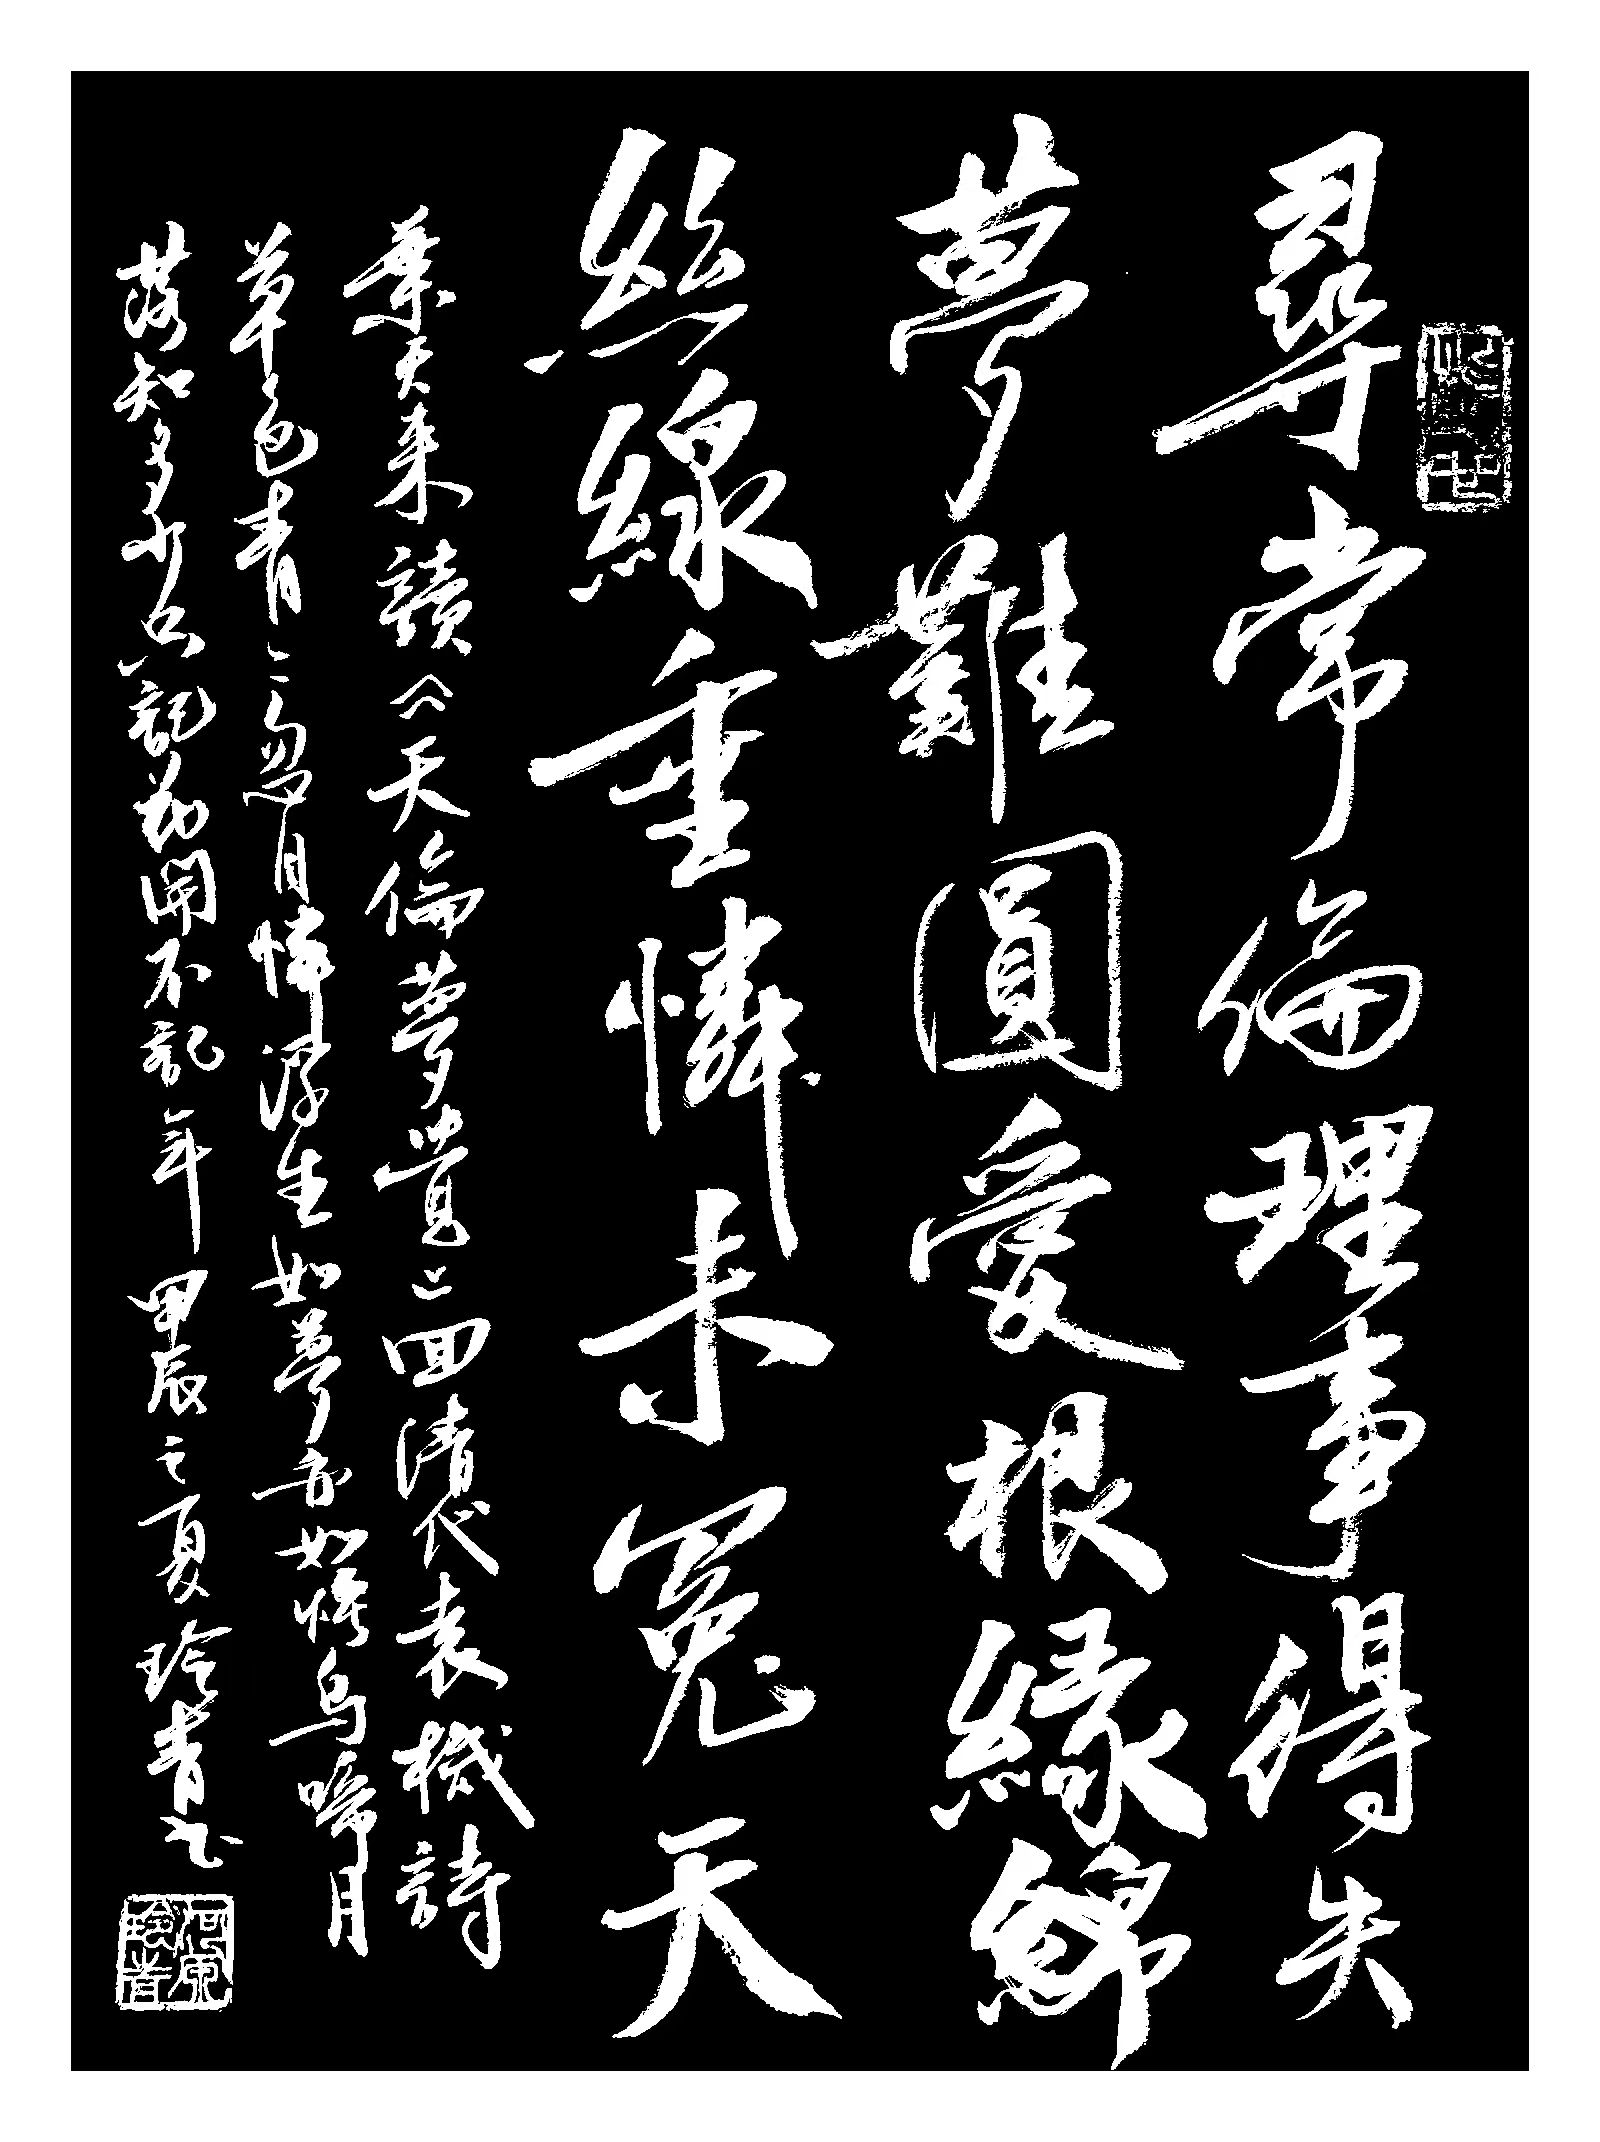 尋常倫理事得失
夢難圓愛根緣綿
絲線重憐未冤天
葉天來讀《天倫夢覺》回清代袁機詩
草色青二忽自憐浮生如夢亦如烟烏啼月
落知多少只記花開不記年 甲辰之夏 玲青书